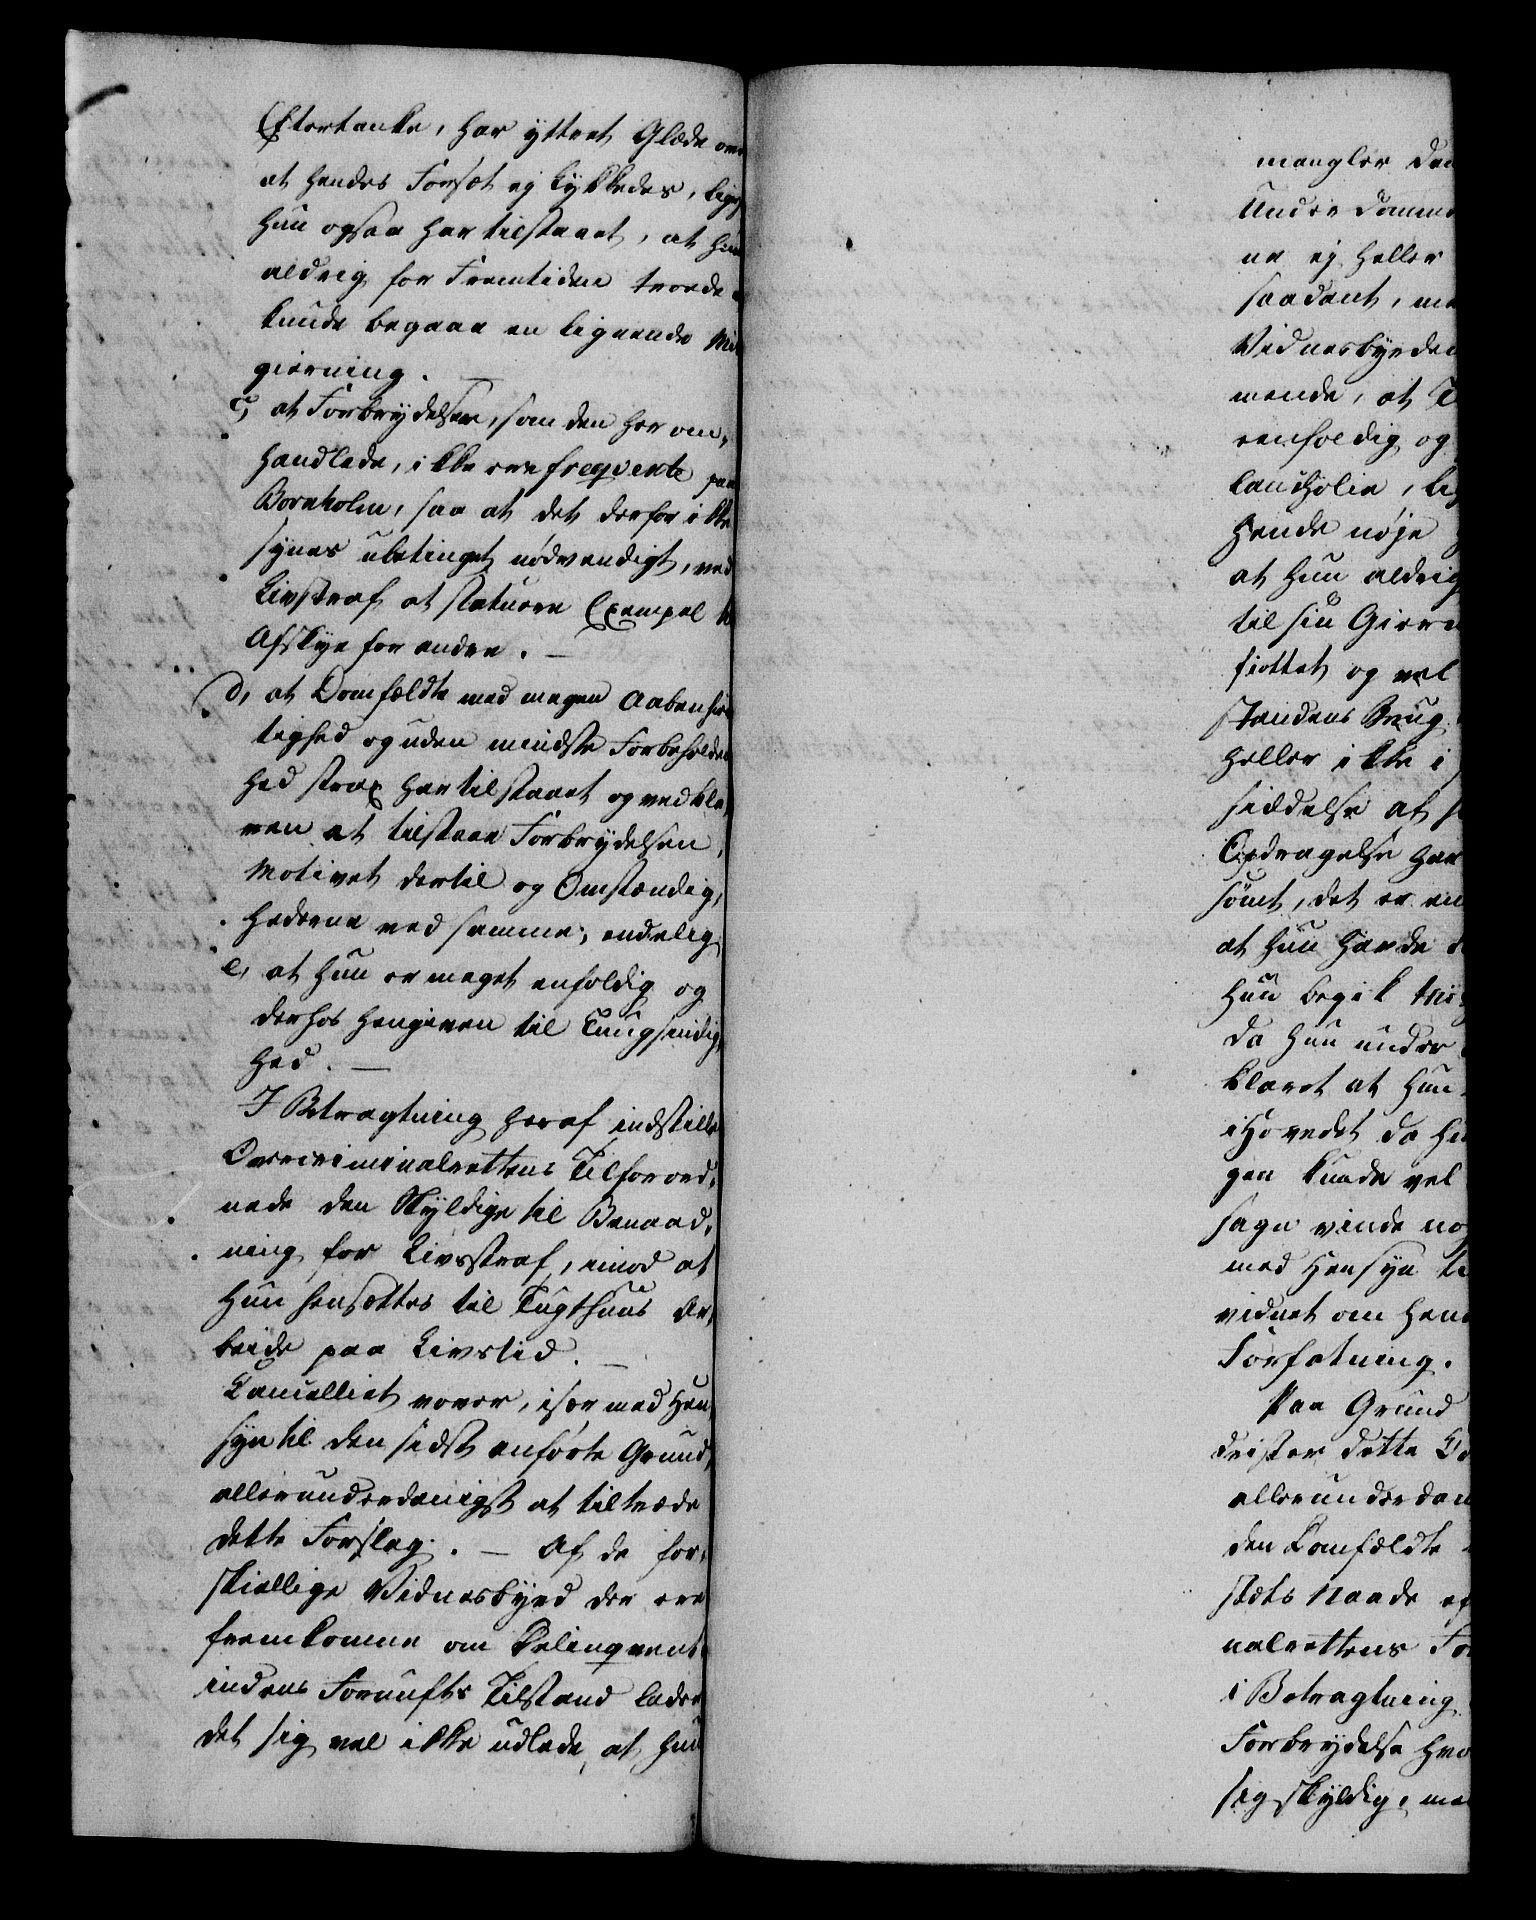 Eftertanke, har yttret Glæde over
at hendes Forsæt ej lykkedes, lige
hun ogsaa har tilstaaet, at hun
aldrig for Fremtiden troede
kunde begaae en lignende Mis
gierning. —
c, at Forbrydelser, som den her om-
handlede, ikke ere freqvente paa
Bornholm, saa at det derfor ikke
synes ubetinget nødvendigt, ved
Livsstraf at statuere Exempel til
Afskye for andre. —
d, at Domfældte med megen Aabenhier
tighed og uden mindste Forbeholden
hed strax har tilstaaet og vedble-
ven at tilstaae Forbrydelsen,
Motivet dertil og Omstændig-
hederne ved samme; endelig
e, at hun er meget enfoldig og
derhos hengiven til Tungsindig-
hed. —
I Betragtning heraf indstille
Overcriminalrettens Tilforord-
nede den Skyldige til Benaad-
ning for Livsstraf, imod at
hun hensættes til Tugthuus Ar-
beide paa Livstid. —
Cancelliet vover, især med Hen
syn til den sidst anførte Grund,
allerunderdanigst at tiltræde
dette Forslag. — Af de for-
skiellige Vidnesbyrd der ere
fremkomne om Delinqvent-
indens Fornufts Tilstand lader
det sig vel ikke udlede, at hun
mangler den
Underdomme
ne ej heller
saadant, me
Vidnesbyrden
mende, at
eenfoldig og
landholie, lig
hende nøje
at hun aldrig
til sin Giern
siettet og vel
standens Brug
heller ikke i
siddelse af
Opdragelse har
sømt, det er
at hun havde
hun begik
da hun under
klaret at hun
i Hovedet da hun
gen kunde vel
sagn vinde no
med Hensyn til
vidnet om hen
Forfatning.
Paa Grund
drister dette
allerunderdan
den Domfældte
stæts Naade
nalrettens For
i Betragtning
Forbrydelse hvo
sig skyldig, me